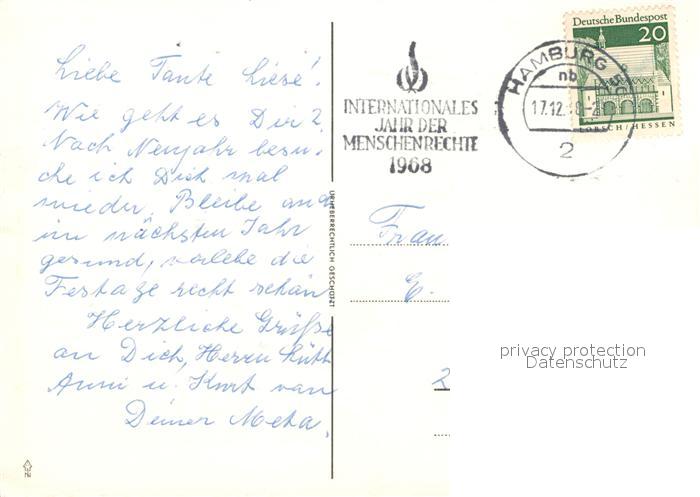 Liebe Tante Liesel!
Wie geht es Dir?
Nach Neujahr besu-
che ich Dich mal
wieder. Bleibe auch
im nächsten Jahr
gesund, verlebe die
Festage recht schön
Herzliche Grüße
an Dich, Herrn
Anni u. Kurt von
Deiner Meta.
URHEBERRECHTLICH GESCHÜTZT
INTERNATIONALES
JAHR DER
MENSCHENRECHTE
1968
HAMBURG
nb
17.12.
2
Deutsche Bundespost
20
LORSCH/HESSEN
Frau
E.
2
privacy protection
Datenschutz